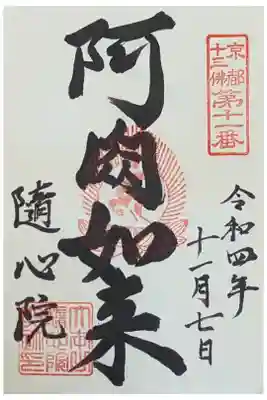 京都
十三佛
第十一番
令和四年
十一月七日
阿閦如来
隨心院